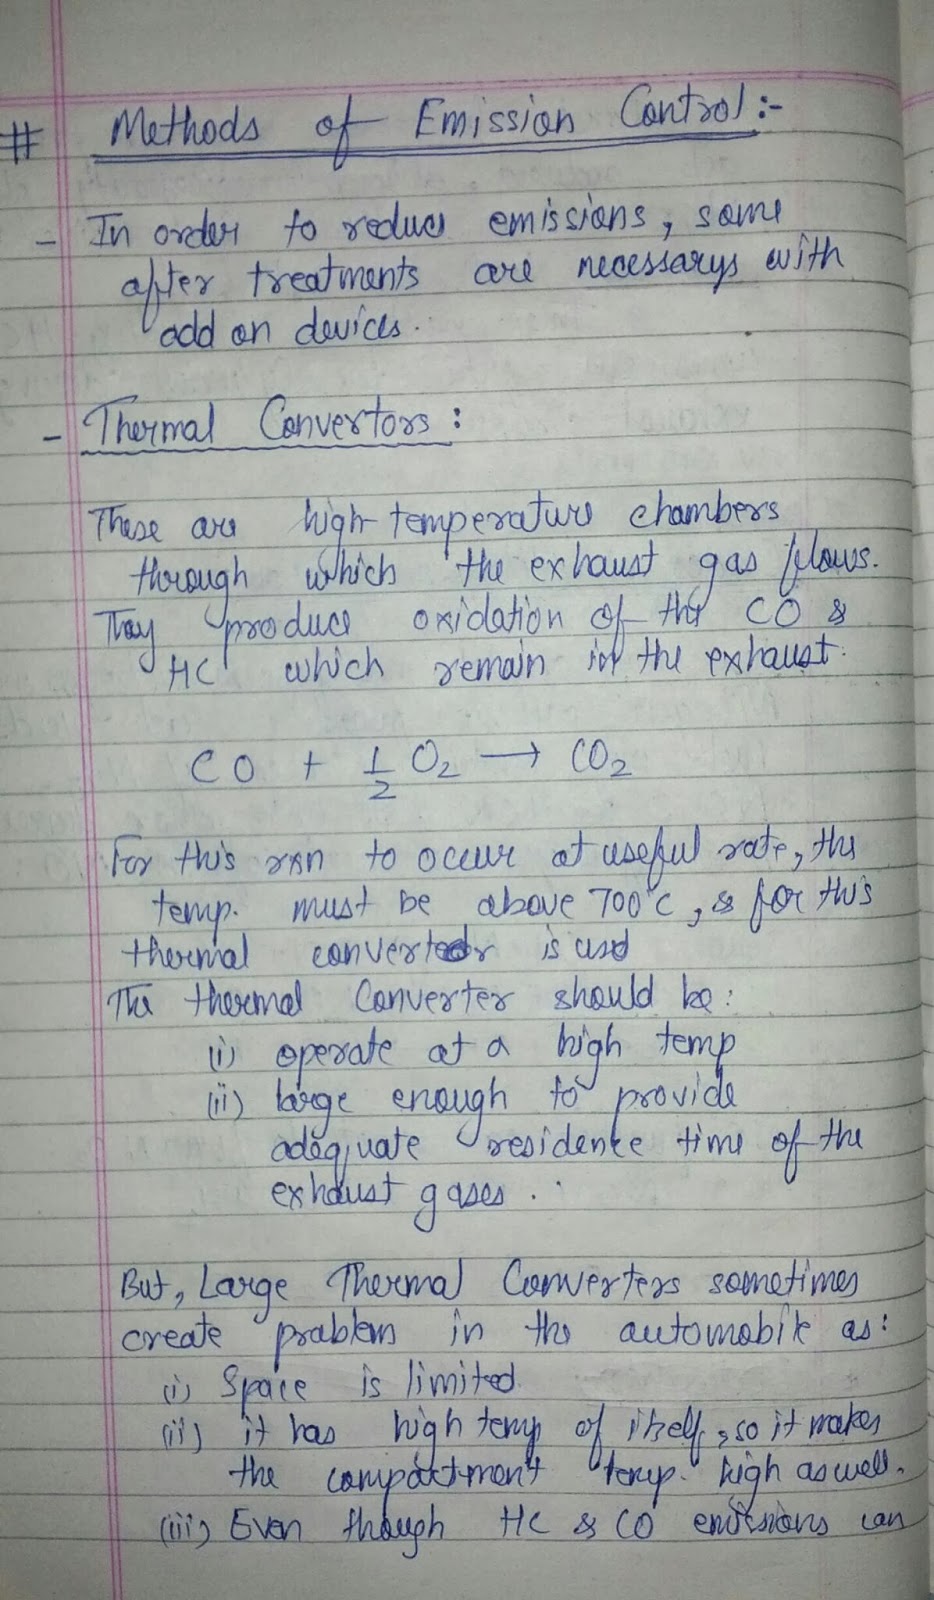 # Methods of Emission Control :-
- In order to reduce emissions, some
after treatments are necessarys with
add on devices.
- Thermal Convertors :
These are high temperature chambers
through which the exhaust gas flows.
They produce oxidation of the CO &
HC which remain in the exhaust.
CO + 1/2 O2 → CO2
For this rxn to occur at useful rate, the
temp. must be above 700°C, & for this
thermal converter is used
The thermal Converter should be :
(i) operate at a high temp
(ii) large enough to provide
adequate residence time of the
exhaust gases.
But, Large Thermal Converters sometimes
create problem in the automobile as :
(i) Space is limited
(ii) it has high temp of itself, so it makes
the compartment temp. high as well.
(iii) Even though HC & CO emissions can